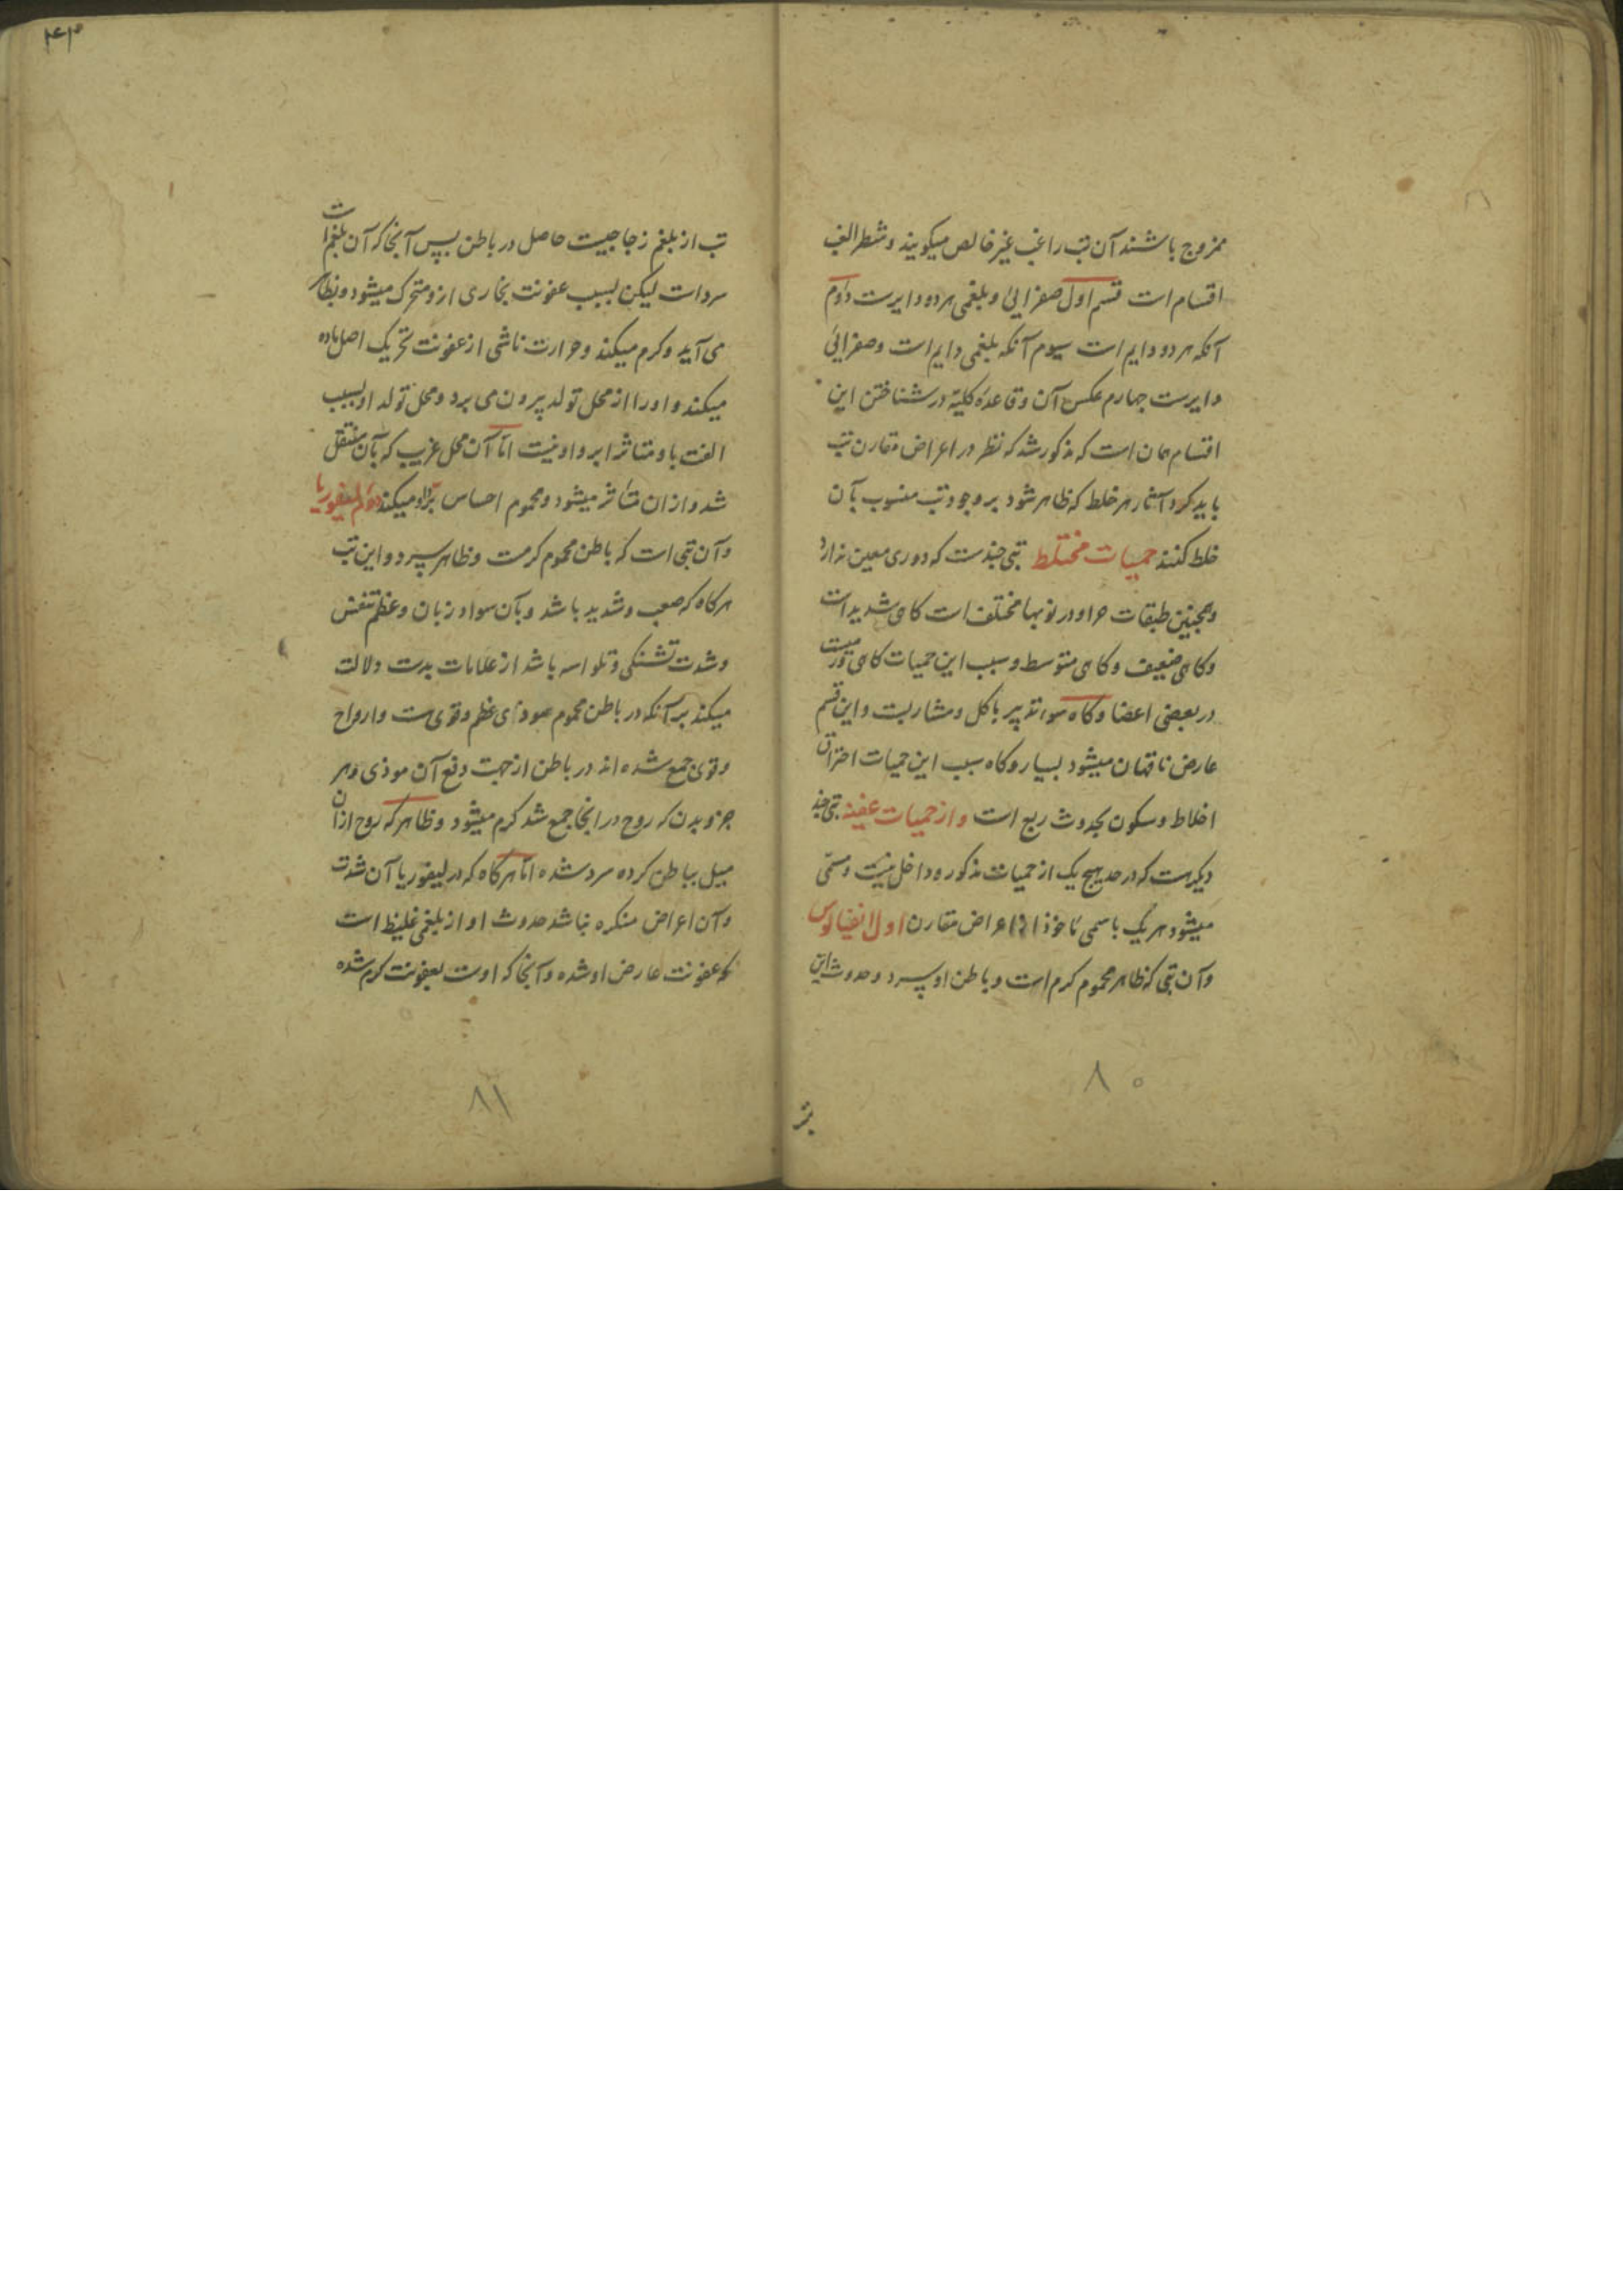 ممزوج باشند آن تب را غب غیر خالص میکویند و شطر الغب
اقسام است قسم اول صفرایی و بلغمی هر دو دایرست دوم
آنکه هر دو دایم است سیوم آنکه بلغمی دایم است و صفرایی
دایرست چهارم عکس آن و قاعده کلیه در شناختن این
اقسام همان است که مذکور شد که نظر در اعراض مقارن تب
باید کرد آثار هر خلط که ظاهر شود بر وجود تب منسوب بآن
خلط کنند حمیات مختلط تبی چندست که دوری معین ندارد
وهمچنین طبقات حر او در نوبها مختلف است کاهی شدید است
و کاهی ضعیف و کاهی متوسط و سبب این حمیات کاهی ورمیست
در بعضی اعضا و کاه سو تدبیر باکل و مشاربست و این قسم
عارض ناقهان میشود بسیار و کاه سبب این حمیات احتراق
اخلاط و سکون بحدوث ربع است و از حمیات عفنه تبی چند
دیکرست که در حد هیچ یک از حمیات مذکوره داخل نیست و مسمی
میشود هر یک باسمی ماخوذ از اعراض مقارن اول انفیالوس
و آن تبی که ظاهر محموم کرم است و باطن او سرد و حدوث این
۸۰
۴۳
تب از بلغم زجاجیست حاصل در باطن پس آنجا که آن بلغم است
سرد است لیکن بسبب عفونت بخاری ازو متحرک میشود و بظاهر
می آید و کرم میکند و حرارت ناشی از عفونت تحریک اصل ماده
میکند و او را از محل تولد بیرون می برد و محل تولد او بسبب
الفت با و متاثر ابر و او نیست اما آن محل غریب که بآن منتقل
شد و از ان متاثر میشود و محموم احساس برد او میکند دوم لیفوریا
و آن تبی است که باطن محموم کرمست و ظاهر سرد و این تب
هر کاه که صعب و شدید باشد و بآن سواد زبان و عظم تنفس
و شدت تشنکی و تلواسه باشد از علامات بدست دلالت
میکند بر آنکه در باطن محموم موذی عظم و قوی ست و ارواح
و قوی جمع شده اند در باطن از جهت دفع آن موذی و هر
جزو بدن که روح در انجا جمع شد کرم میشود و ظاهر که روح ازان
میل بباطن کرده سرد شده اما هر کاه که در لیفوریا آن شدت
و آن اعراض منکره نباشد حدوث او از بلغمی غلیظ است
که عفونت عارض او شده و آنجا که اوست بعفونت کرم شده
۸۱